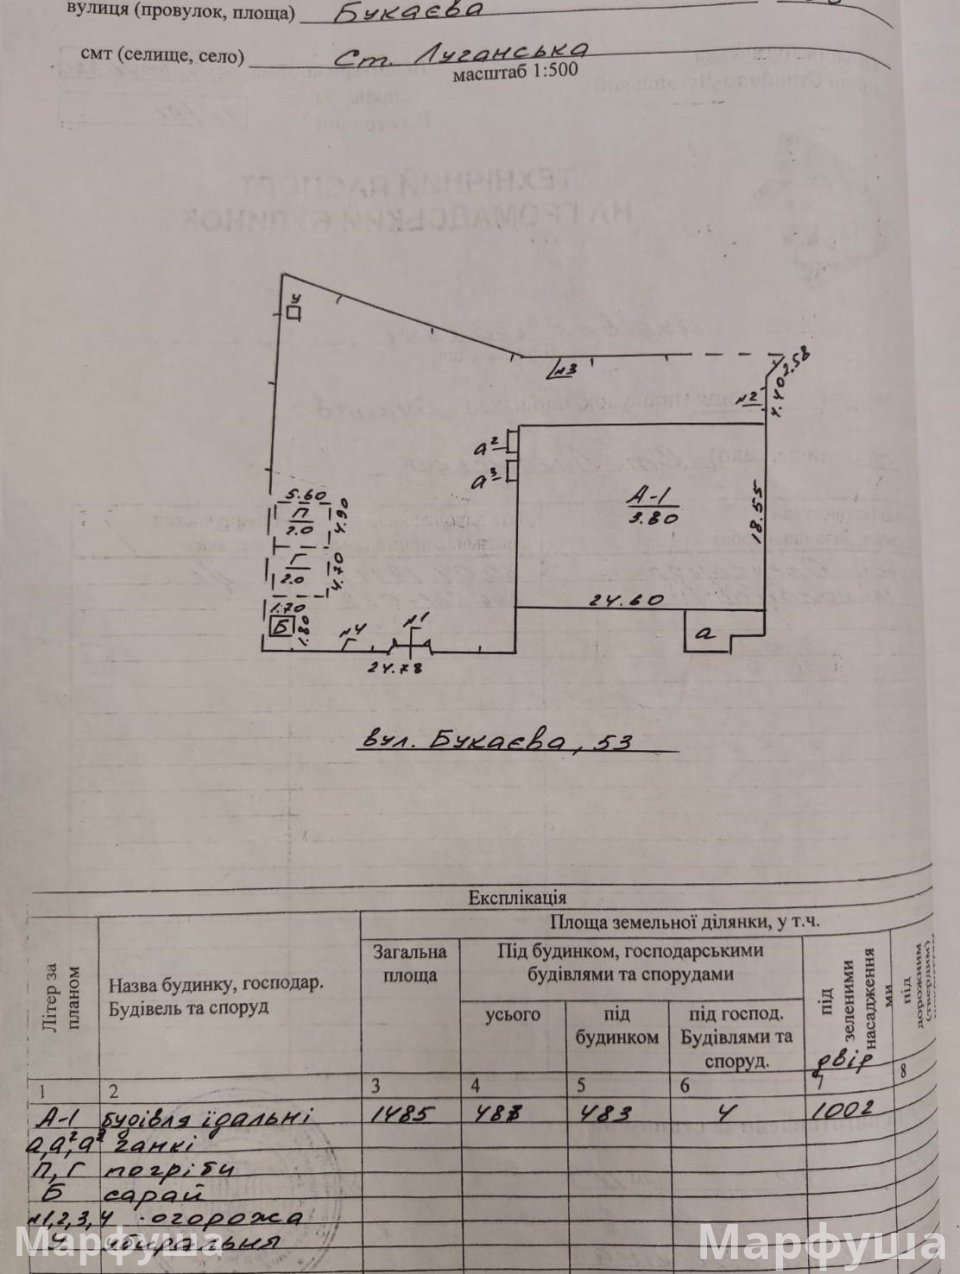 вулиця (провулок, площа) Букаєва
смт (селище, село) Ст. Луганська
масштаб 1:500
У
№3
2.58
4.40
№2
а²
а³
А-1
3.80
18.55
5.60
П
2.0
4.90
Г
2.0
4.70
1.70
Б
1.80
24.60
а
№4
№1
24.78
вул. Букаєва, 53
Експлікація
Літер за планом
Назва будинку, господар. Будівель та споруд
Площа земельної ділянки, у т.ч.
Загальна площа
Під будинком, господарськими будівлями та спорудами
усього
під будинком
під господ. Будівлями та споруд.
під зеленими насадження ми
двір
під дорожним
1 2 3 4 5 6 7 8
А-1 будівля їдальні 1485 483 4 1002
а, а², а³ ганкі
П, Г погріби
Б сарай
№1,2,3,4 огорожа
У убиральня
Марфуша Марфуша